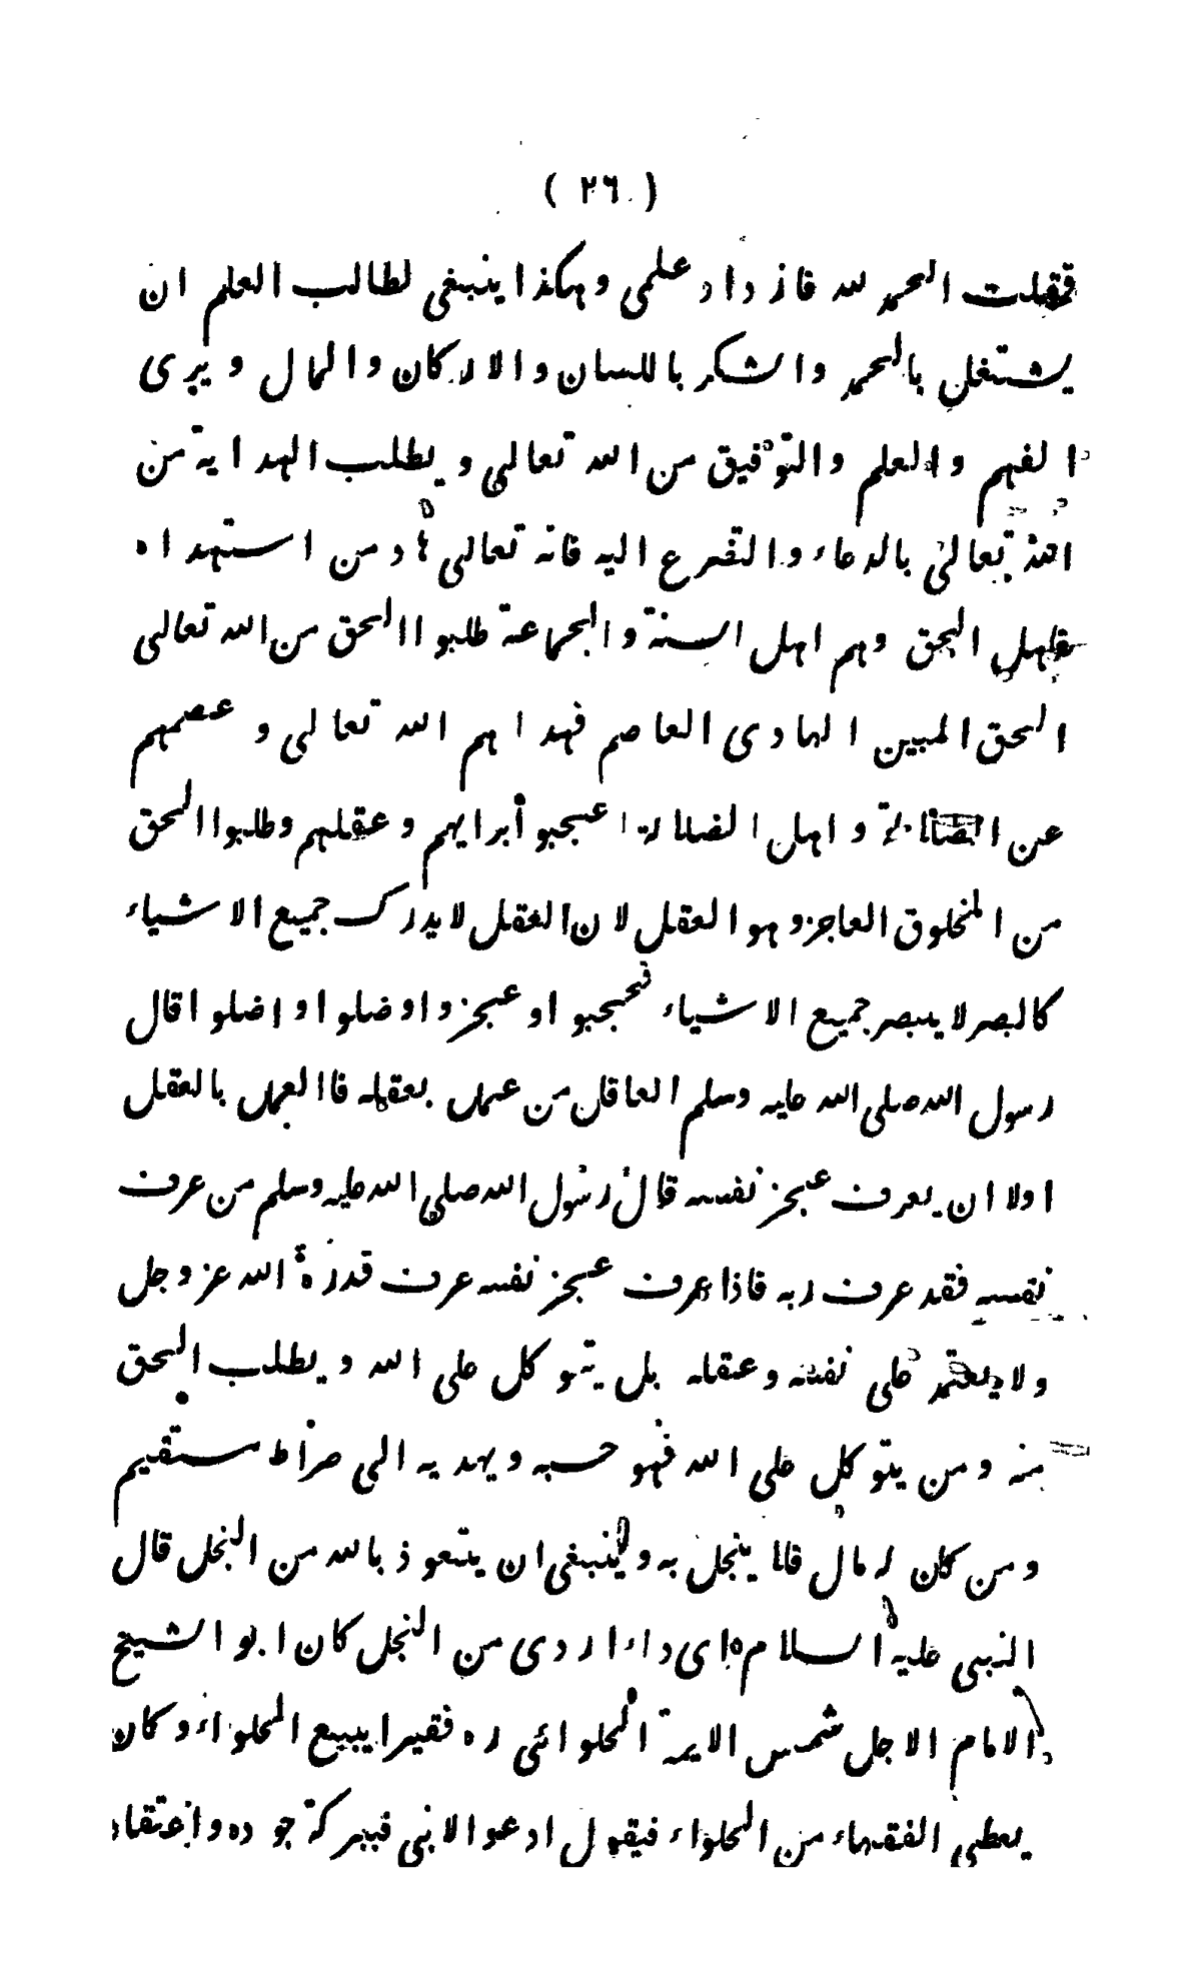 ( ٢٦ )
فقلت الحمد لله فازداد علمى وهكذا ينبغى لطالب العلم ان
يشتغل بالحمد والشكر باللسان والاركان والمال ويرى
الفهم والعلم والتوفيق من الله تعالى ويطلب الهداية من
الله تعالى بالدعاء والتضرع اليه فانه تعالى هاد من استهداه
فاهل الحق وهم اهل السنة والجماعة طلبوا الحق من الله تعالى
الحق المبين الهادى العاصم فهداهم الله تعالى وعصمهم
عن الضلالة واهل الضلالة اعجبوا برايهم وعقلهم وطلبوا الحق
من المخلوق العاجز وهو العقل لان العقل لا يدرك جميع الاشياء
كالبصر لا يبصر جميع الاشياء فحجبوا وعجزوا وضلوا واضلوا قال
رسول الله صلى الله عليه وسلم العاقل من عمل بعقله فاالعمل بالعقل
اولا ان يعرف عجز نفسه قال رسول الله صلى الله عليه وسلم من عرف
نفسه فقد عرف ربه فاذا عرف عجز نفسه عرف قدرة الله عز وجل
ولا يعتمد على نفسه وعقله بل يتوكل على الله ويطلب الحق
منه ومن يتوكل على الله فهو حسبه ويهديه الى صراط مستقيم
ومن كان له مال فلا يبخل به وينبغى ان يتعوذ بالله من البخل قال
النبى عليه السلام اى داء اردى من البخل كان ابو الشيخ
الامام الاجل شمس الايمة الحلوائى ره فقيرا يبيع الحلواء وكان
يعطى الفقهاء من الحلواء فيقول ادعوا لابنى فببركة جوده واعتقاد